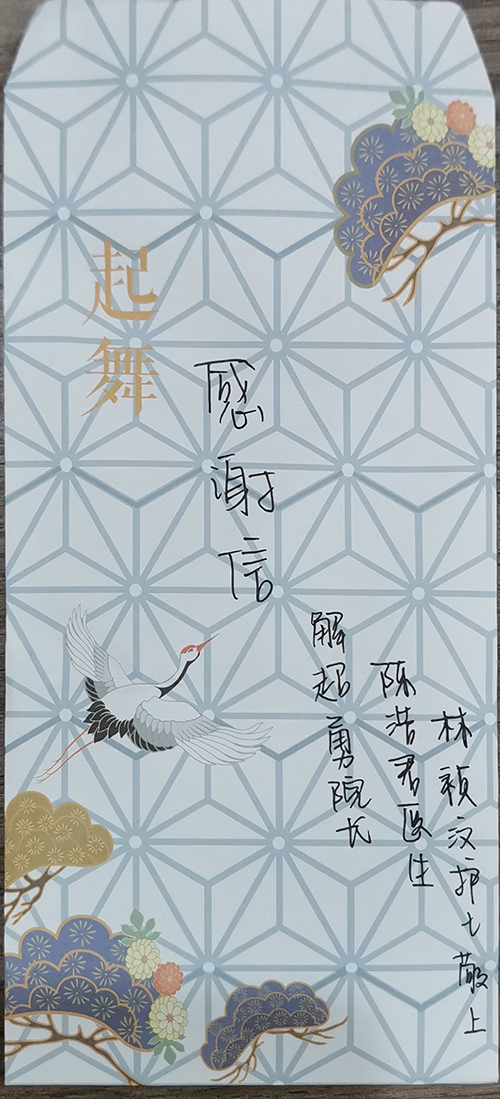 起舞
感谢信
解超勇院长
陈浩君医生
林祯汶护士敬上